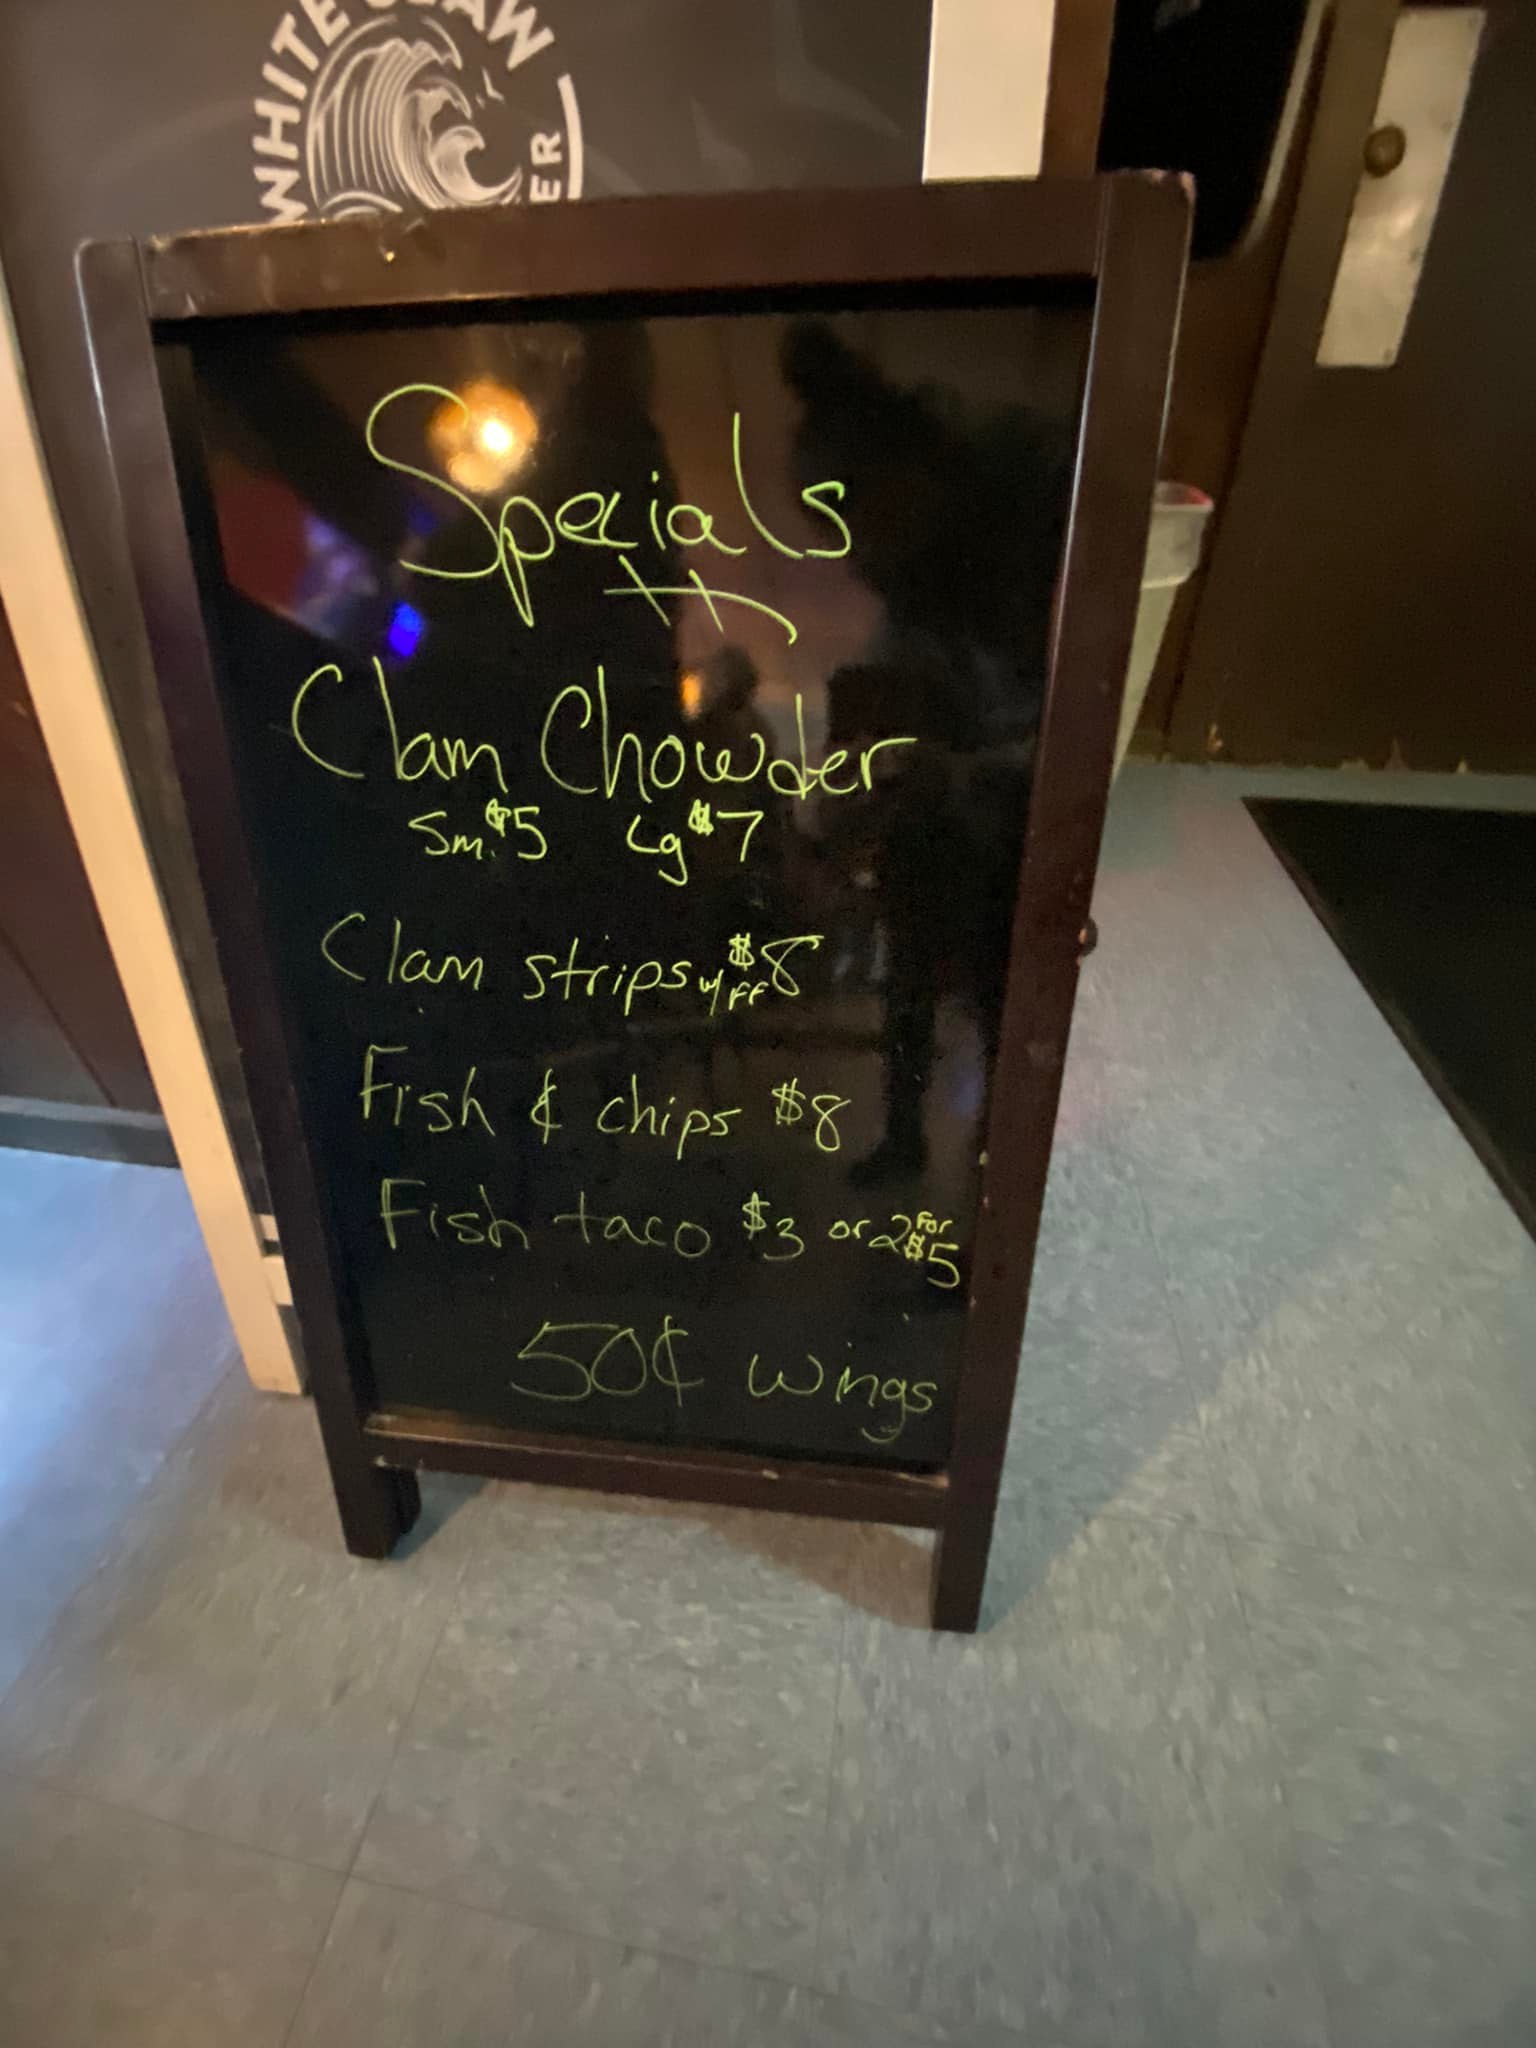 WHITE CLAW
Specials
Clam Chowder
Sm. $5 Lg $7
Clam strips w/ FF $8
Fish & chips $8
Fish taco $3 or 2 For $5
50¢ wings